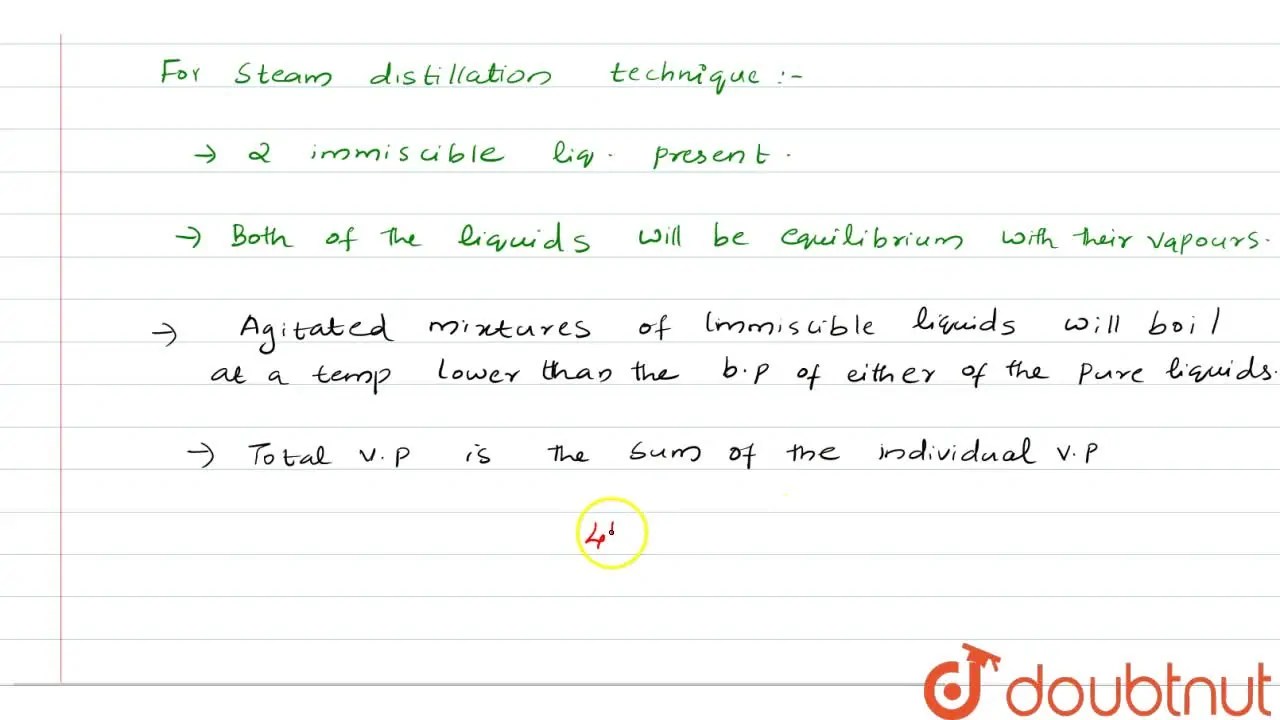 For Steam distillation technique :-
→ 2 immiscible liq. present.
→ Both of the liquids will be equilibrium with their vapours.
→ Agitated mixtures of Immiscible liquids will boil
at a temp lower than the b.p of either of the pure liquids.
→ Total v.p is the sum of the individual v.p
4
doubtnut